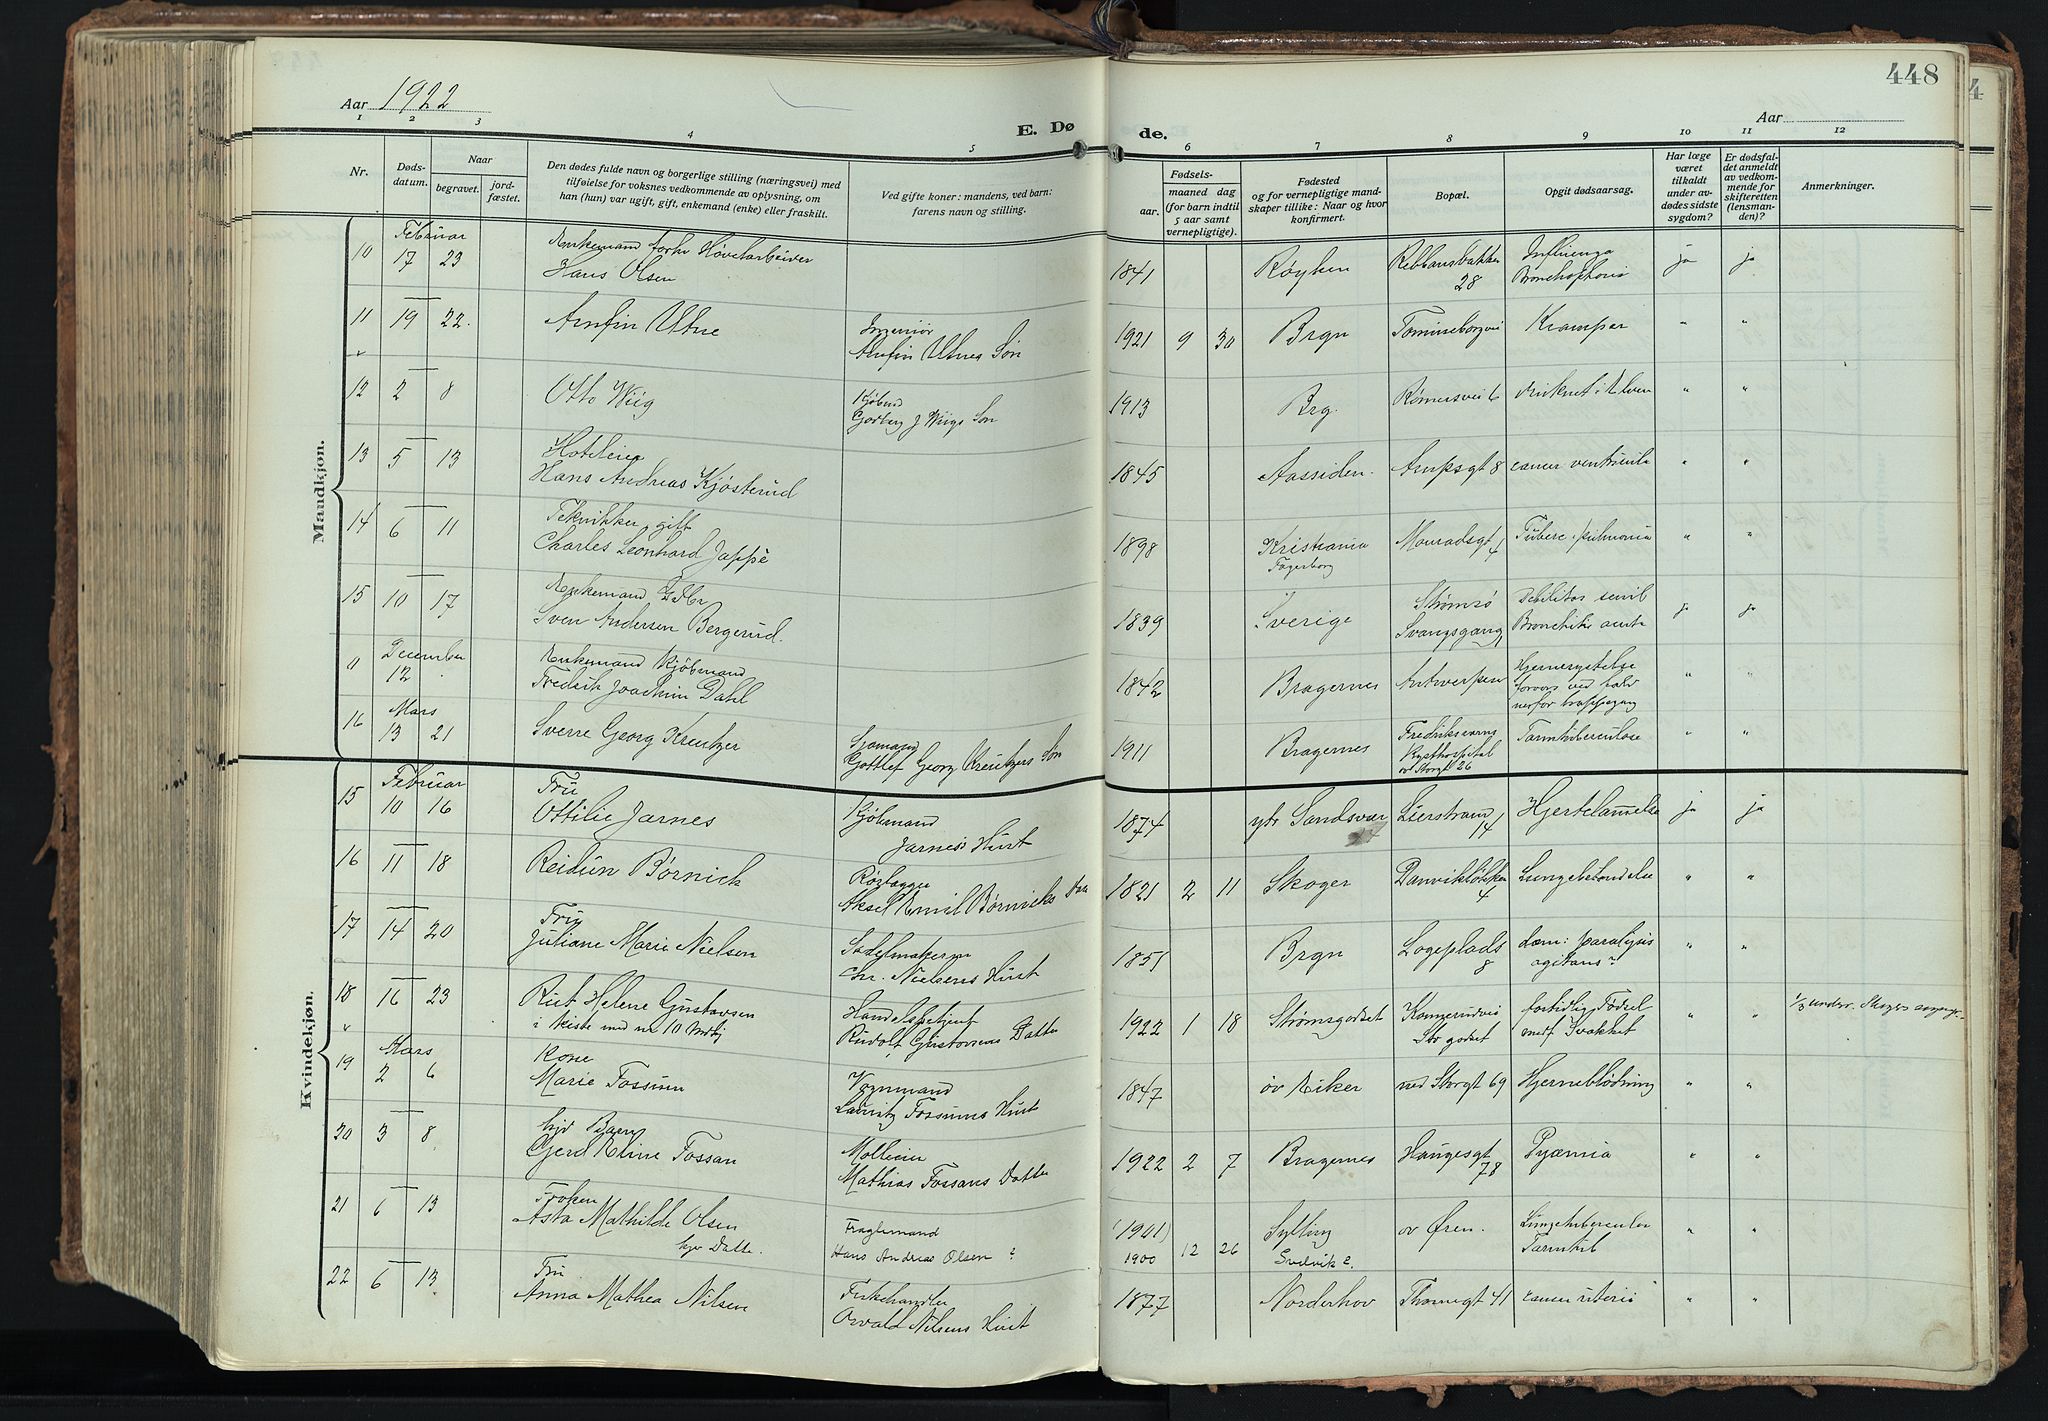 448
Aar 1922
Aar
E. Dø de.
1 2 3 4 5 6 7 8 9 10 11 12
Nr.
Døds-
datum.
Naar
begravet.
jord-
fæstet.
Den dødes fulde navn og borgerlige stilling (næringsvei) med
tilføielse for voksnes vedkommende av oplysning, om
han (hun) var ugift, gift, enkemand (enke) eller fraskilt.
Ved gifte koner: mandens, ved barn:
farens navn og stilling.
Fødsels-
aar.
maaned dag
(for barn indtil
5 aar samt
vernepligtige).
Fødested
og for vernepligtige mand-
skaper tillike: Naar og hvor
konfirmert.
Bopæl.
Opgit dødsaarsag.
Har læge
været
tilkaldt
under av-
dødes sidste
sygdom?
Er dødsfal-
det anmeldt
av vedkom-
mende for
skifteretten
(lensman-
den)?
Anmerkninger.
Mandkjøn.
Februar
10 17 23 Enkemand Høvelarbeider
Hans Olsen 1841 Røyken 28 Influenza ja ja
11 19 22. Arnfin Utne Ingeniør
Arnfin Utnes Søn 1921 9 30 Brgn Kramper " "
12 2 8 Otto Wiig Kjøbmd
J Wiigs Søn 1913 Brg. Rømersvei 6 druknet i Elven " "
13 5 13 Hoteleier
Hans Andreas Kjøsterud 1845 Aassiden. 8 cancer ventricule " "
14 6 11 Tekniker, gift
Charles Leonhard Jappe 1898 Kristiania
Fagerborg Konradsgt 4 Tuberc. pulmonia " "
15 10 17 Enkemand
Sven Andersen Bergerud. 1839 Sverige Strømsø
Svangsgang Debilitas senil
ja ja
December
11 12 Enkemand Kjøbmand
Fredrik Joachim Dahl 1842 Bragernes Antwerpen Hjernerystelse
ved fald
nedfor trappegang " "
Mars
16 13 21 Sverre Georg Kreutzer Sjømand
Gottlef Georg Kreutzers Søn 1911 Bragernes Fredriksværns
Kysthospital
Storgt 26 Tarmtuberculose " "
Kvindekjøn.
Februar
15 10 16 Fru
Ottilie Jarnes Kjøbmand
Jarnes's Hust 1874 ytr Sandsvær Lierstrand 14 Hjertelammelse ja ja
16 11 18 Reidun Børnich Rørlægger
Aksel Emil Børnichs 1821 2 11 Skoger 4 Lungebetændelse " "
17 14 20 Fru
Juliane Marie Nielsen Sadelmaker
Chr. Nielsens Hust 1851 Brgn Logeplads 8 paralysis
agitans? " "
18 16 23 Rut Helene Gustavsen
i kiste med nr 10 Handelsbetjent
Rudolf Gustavsens Datter 1922 1 18 Strømsgodset
Str godset fortidlig Fødsel
medf Svakhet " " underr. Skoger
Mars
19 2 6 Kone
Marie Fossum Vognmand
Lauritz Fossums Hust 1847 øv Eiker ned Storgt 69 Hjerneblødning " "
20 3 8 hjd Barn
Gjerd Eline Fossan Mølleeier
Mathias Fossans Datter 1922 2 7 Bragernes Haugesgt 78 Pyæmia " "
21 6 13 Frøken
Asta Mathilde Olsen
hjv Datter.
Hans Andreas Olsen ? (1901)
1900 12 26 Sylling
Svelvik?. ov Øren. Lungetuberculose
Tarmtub " "
22 6 13 Fru
Anna Mathea Nilsen Fiskehandler
Osvald Nilsens Hust 1877 Norderhov Thornegt 41 cancer uterii " "